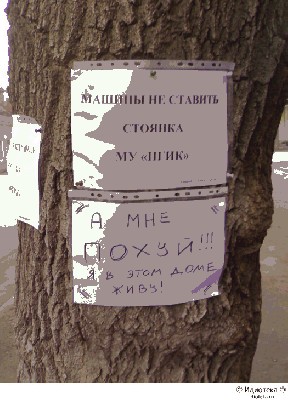 МАШИНЫ НЕ СТАВИТЬ
СТОЯНКА
МУ «ШГИК»
А МНЕ
ПОХУЙ!!!
Я В ЭТОМ ДОМЕ
ЖИВУ!
© Идиотека